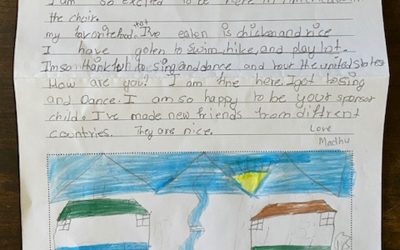 I am so excited to be here in
the choir.
my favorite food that I've eaten is chicken and rice
I have goten to swim, hike, and play lot.
Im so thankful to sing and dance and tour the united states
How are you? I am fine here I got to sing
and Dance. I am so happy to be your sponsor
child. I've made new friends from diffrent
countries. They are nice.
Love
Madhu